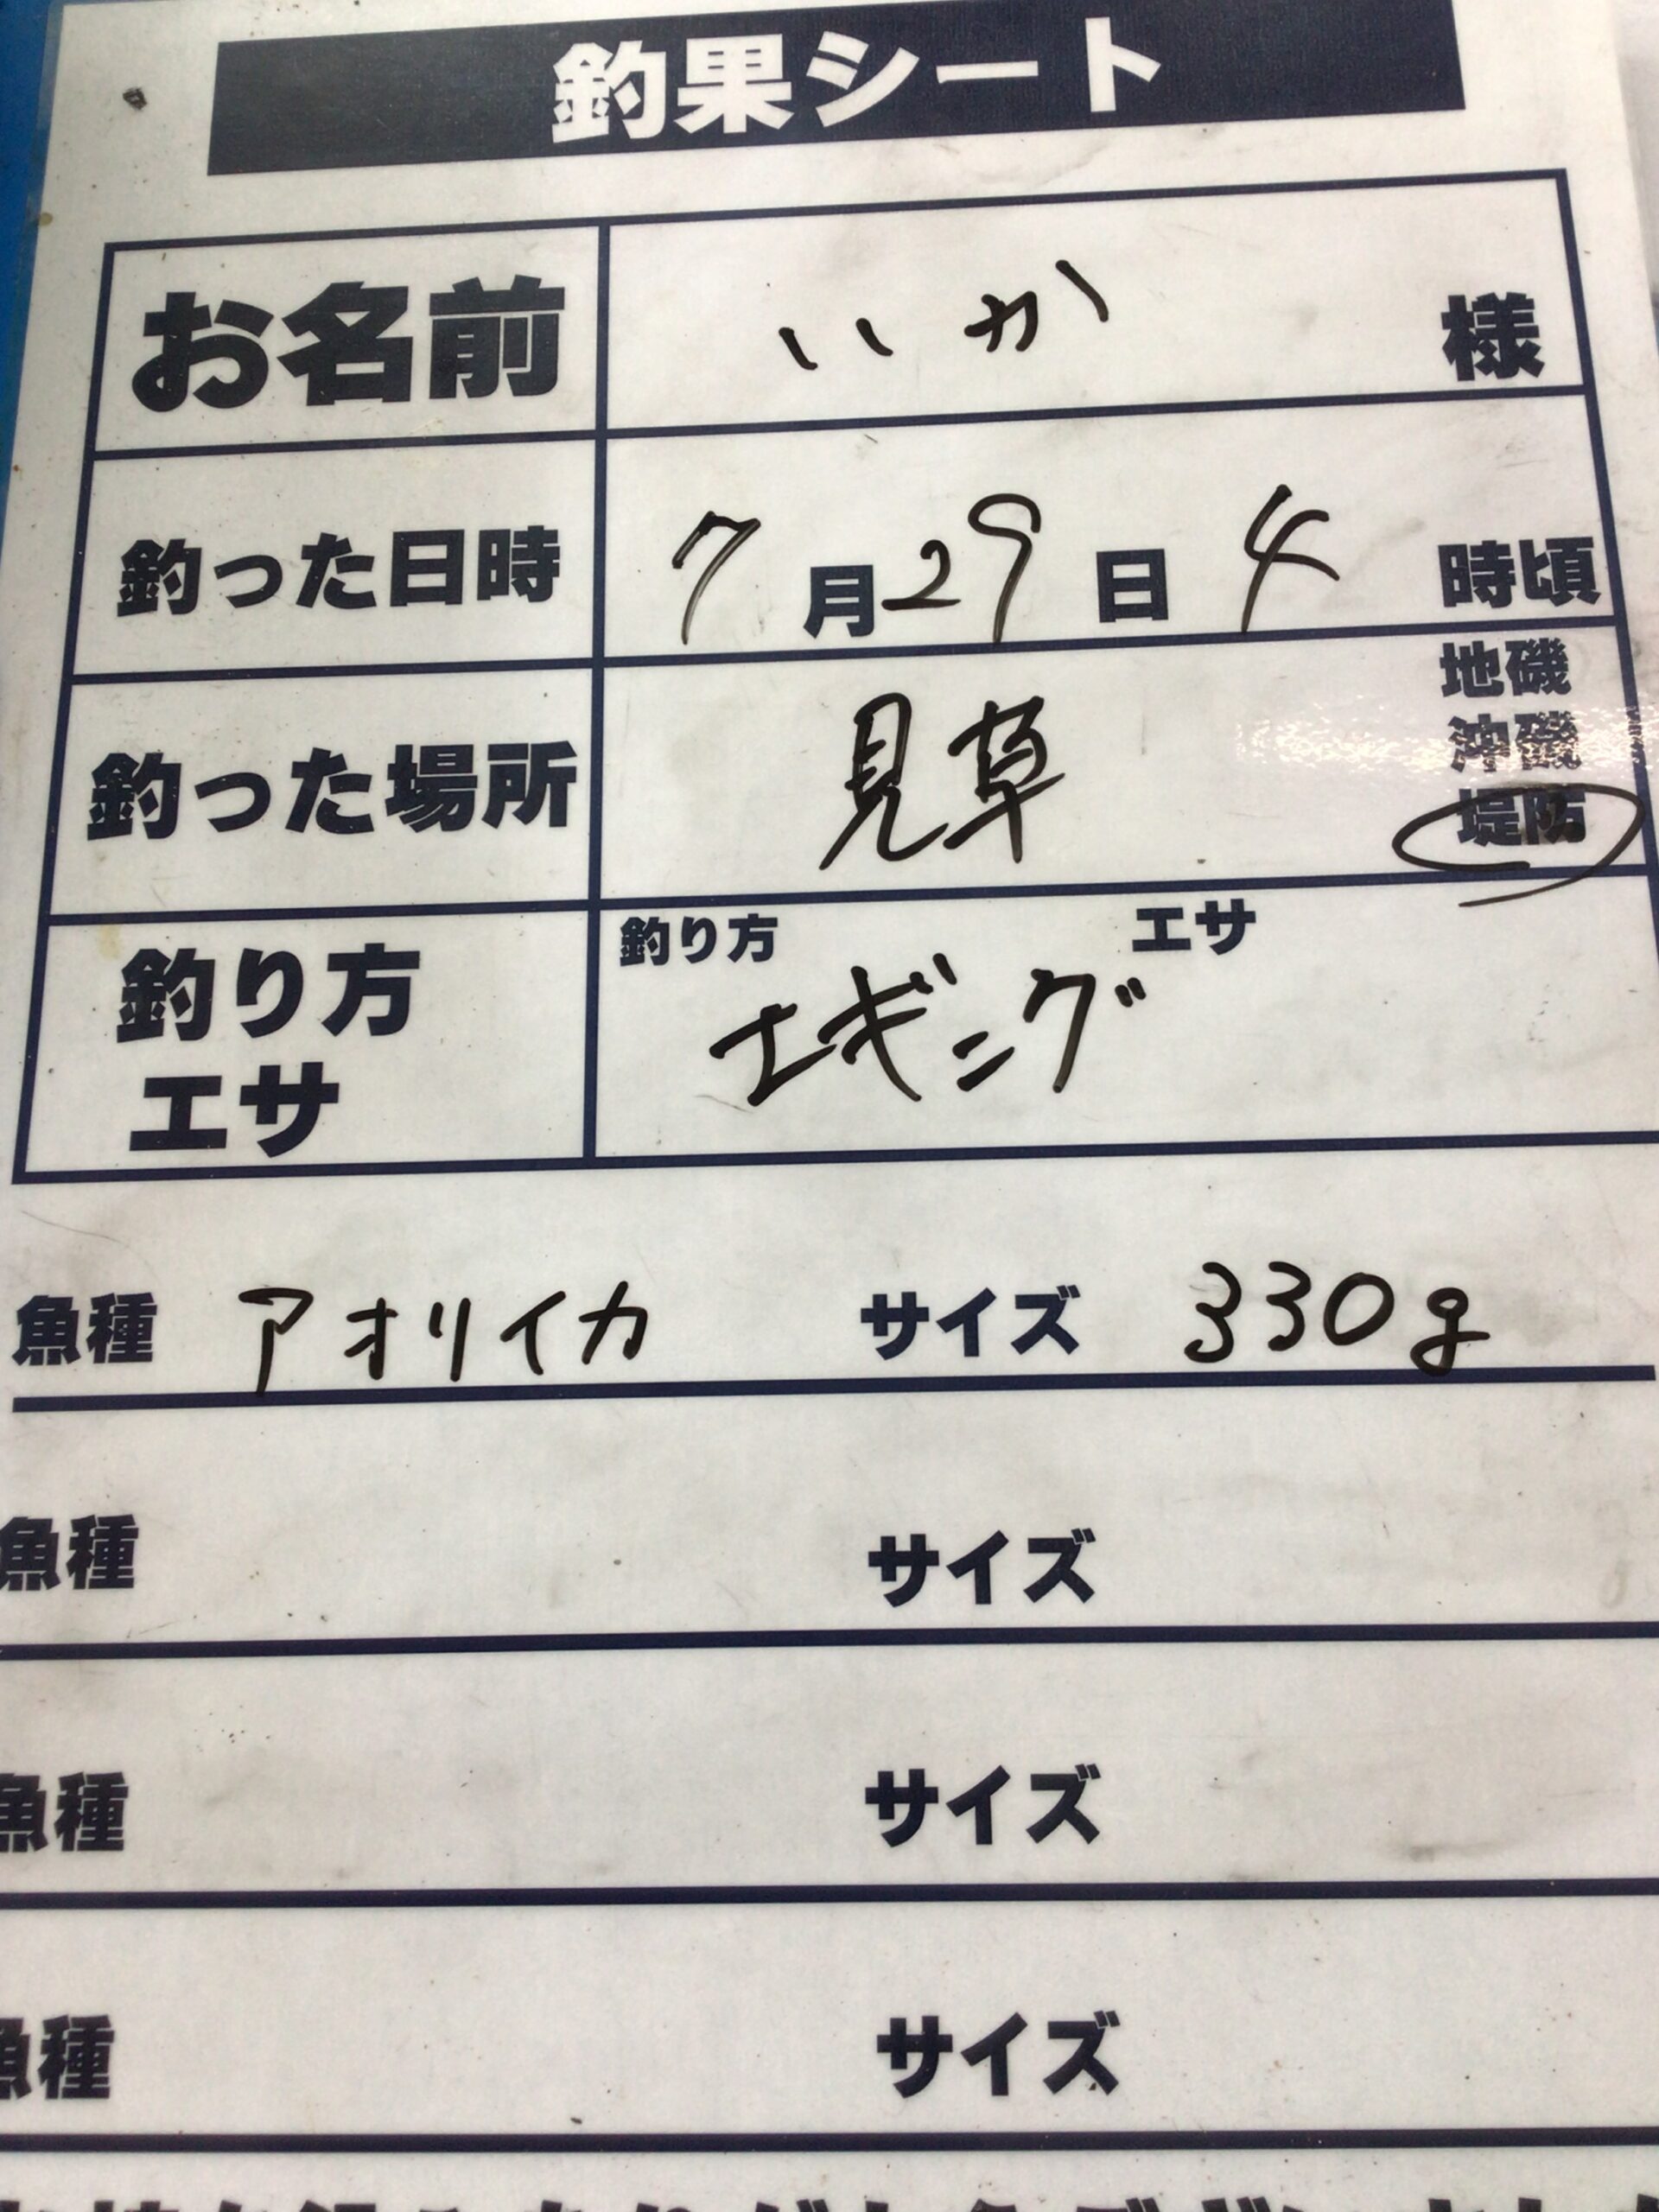 釣果シート
お名前 いか 様
釣った日時 7月29日 4時頃
釣った場所 見草 地磯
沖磯
堤防
釣り方 エサ
釣り方 エギング
エサ
魚種 アオリイカ サイズ 330g
魚種 サイズ
魚種 サイズ
魚種 サイズ